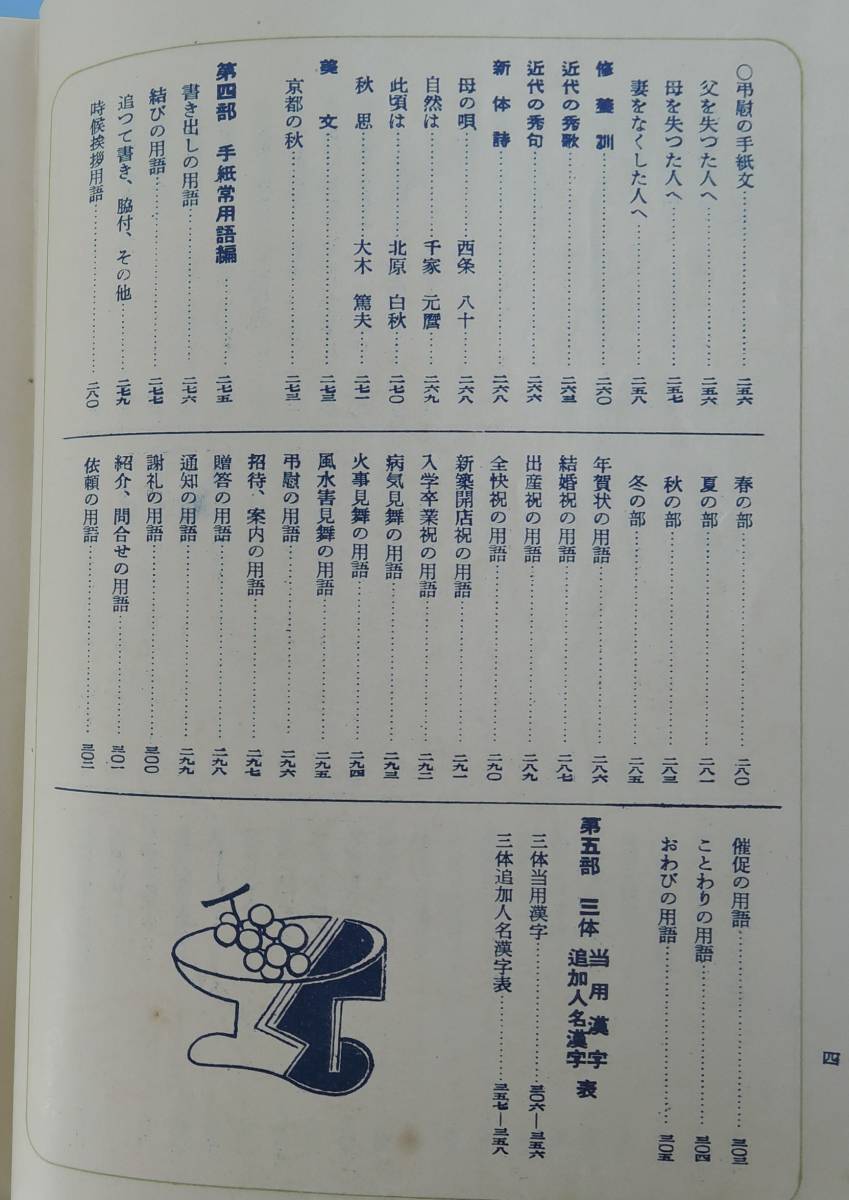 ○弔慰の手紙文……………二五六
父を失つた人へ……………二五六
母を失つた人へ……………二五七
妻をなくした人へ……………二五八
修養訓……………二六〇
近代の秀歌……………二六三
近代の秀句……………二六六
新体詩……………二六八
母の唄……………西条 八十……………二六八
自然は……………千家 元麿……………二六九
此頃は……………北原 白秋……………二七〇
秋思……………大木 篤夫……………二七一
美文……………二七三
京都の秋……………二七三
第四部 手紙常用語編……………二七五
書き出しの用語……………二七六
結びの用語……………二七七
追つて書き、脇付、その他……………二七九
時候挨拶用語……………二八〇
春の部……………二八〇
夏の部……………二八一
秋の部……………二八三
冬の部……………二八五
年賀状の用語……………二八六
結婚祝の用語……………二八七
出産祝の用語……………二八九
全快祝の用語……………二九〇
新築開店祝の用語……………二九一
入学卒業祝の用語……………二九二
病気見舞の用語……………二九三
火事見舞の用語……………二九四
風水害見舞の用語……………二九五
弔慰の用語……………二九六
招待、案内の用語……………二九七
贈答の用語……………二九八
通知の用語……………二九九
謝礼の用語……………三〇〇
紹介、問合せの用語……………三〇一
依頼の用語……………三〇二
催促の用語……………三〇三
ことわりの用語……………三〇四
おわびの用語……………三〇五
第五部 三体 当用漢字 追加人名漢字 表
三体当用漢字……………三〇六―三五六
三体追加人名漢字表……………三五七―三五八
四